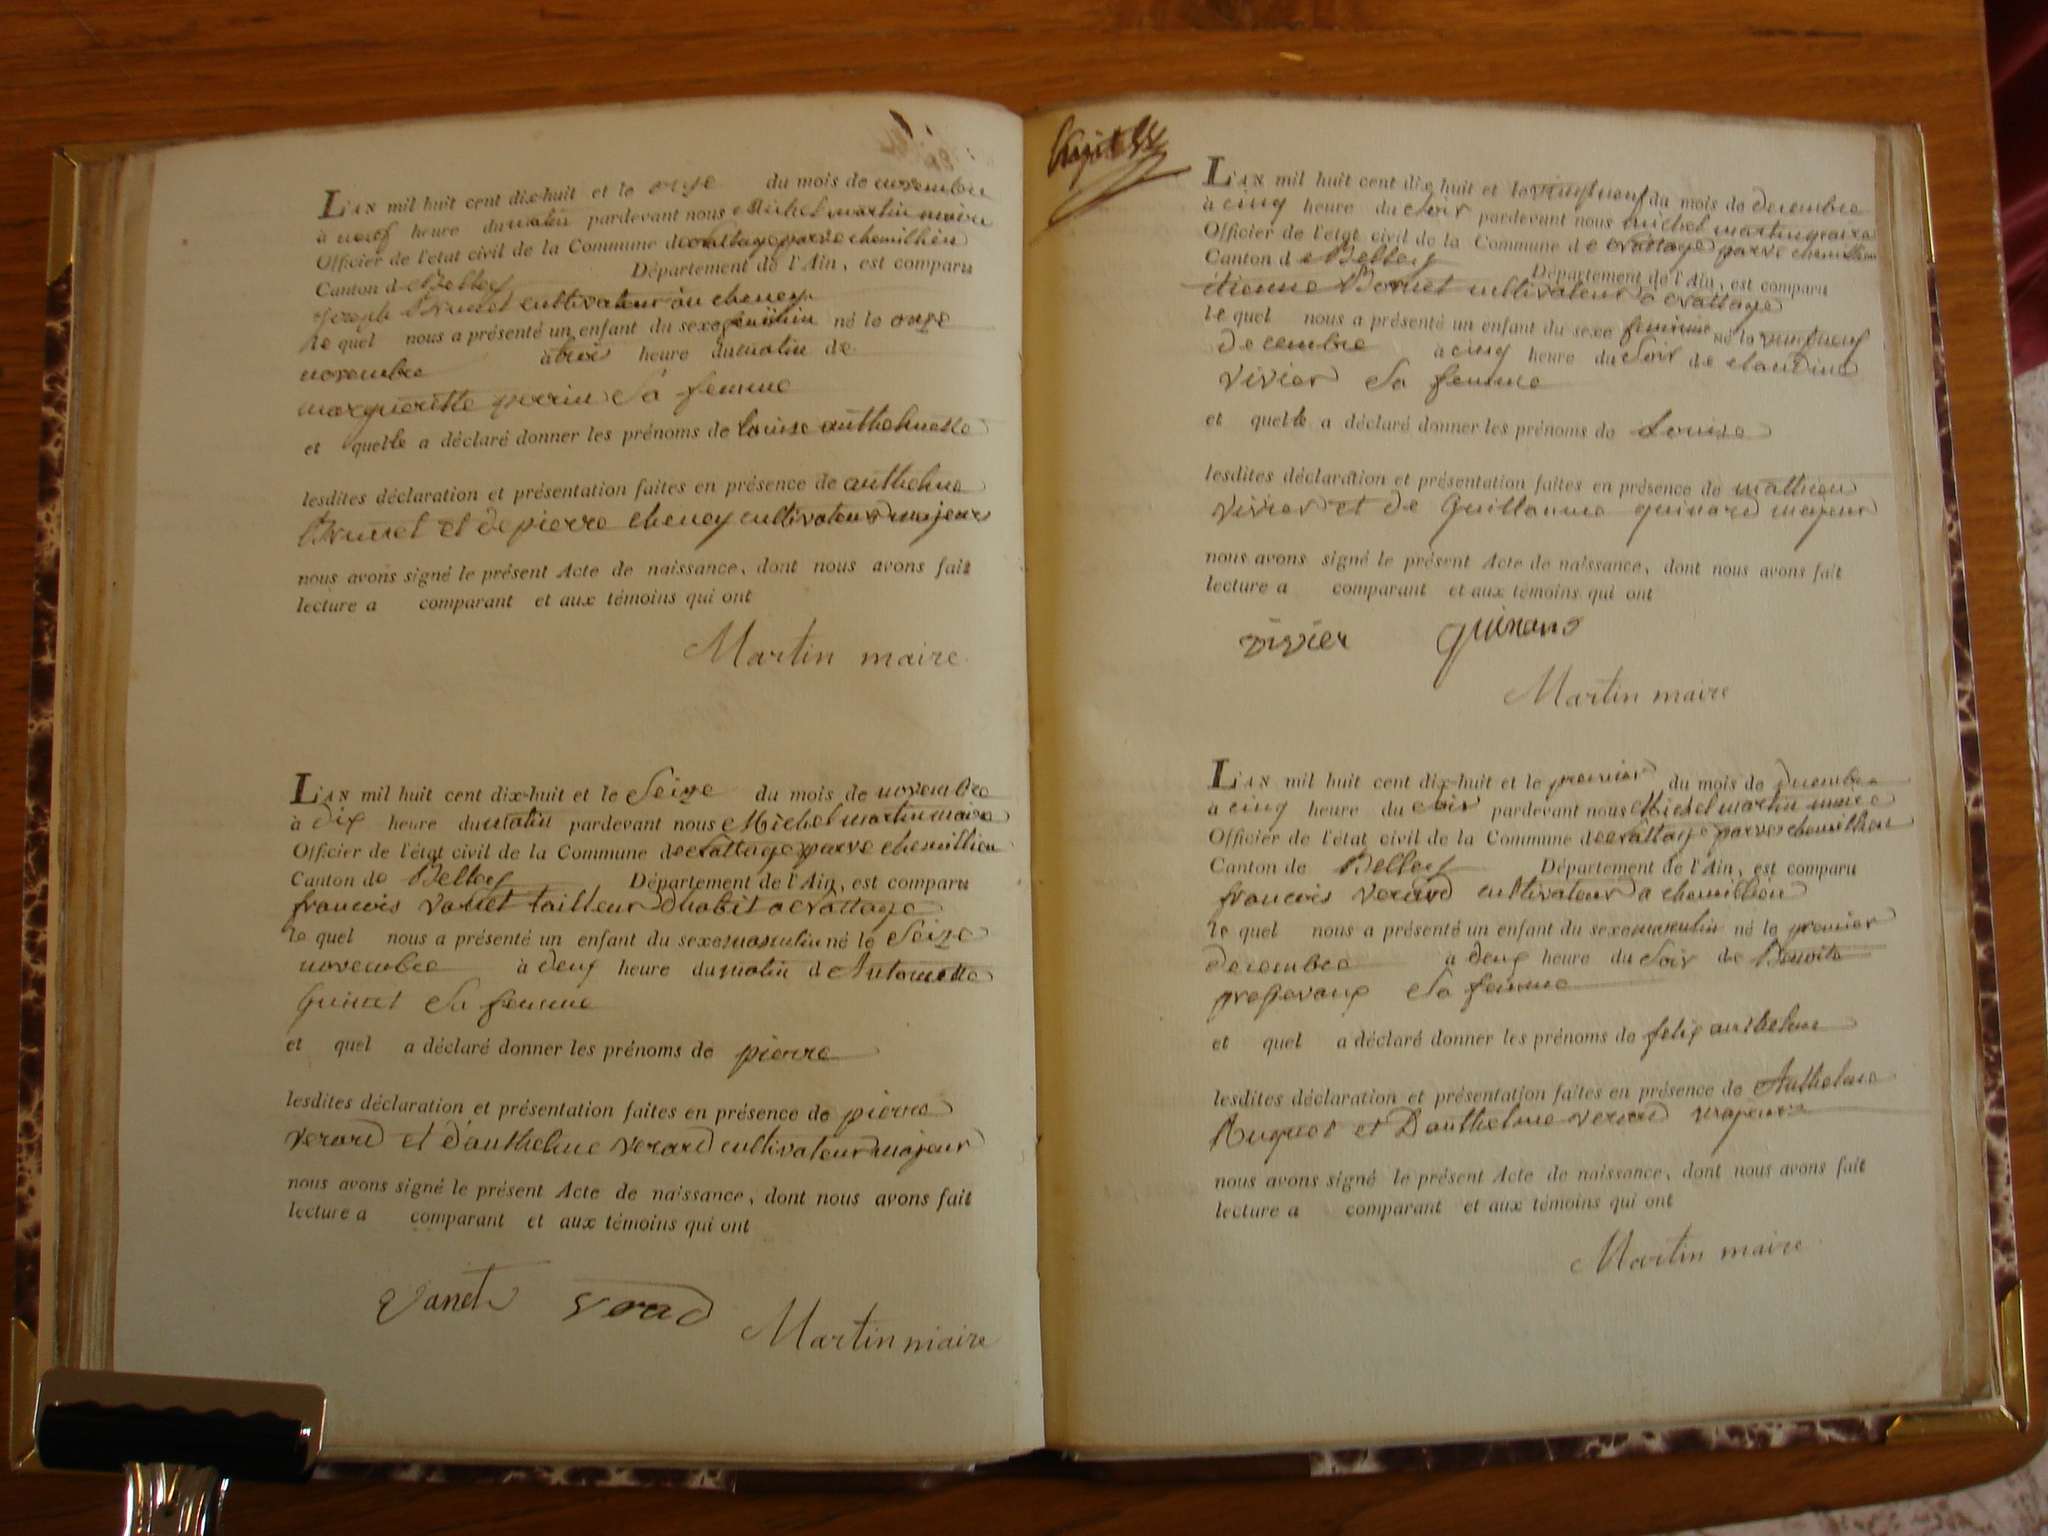 L'AN mil huit cent dix-huit et le onze du mois de novembre
à neuf heure du matin pardevant nous Michel martin maire
Officier de l'état civil de la Commune de crattage parve chemillieu
Canton d Belley Département de l'Ain, est comparu
joseph Brunet cultivateur au cheney
le quel nous a présenté un enfant du sexe feminin né le onze
novembre à trois heure du matin de
margueritte perrin Sa femme
et quel le a déclaré donner les prénoms de louise anthelmette
lesdites déclaration et présentation faites en présence de anthelme
Brunet et de pierre cheney cultivateur majeur
nous avons signé le présent Acte de naissance, dont nous avons fait
lecture a comparant et aux témoins qui ont
Martin maire
L'AN mil huit cent dix-huit et le Seize du mois de novembre
à dix heure du matin pardevant nous Michel martin maire
Officier de l'état civil de la Commune de crattage parve chemillieu
Canton de Belley Département de l'Ain, est comparu
francois vanet tailleur dhabit a crattage
le quel nous a présenté un enfant du sexe masculin né le Seize
novembre à deux heure du matin d Antoinette
Guinet Sa femme
et quel a déclaré donner les prénoms de pierre
lesdites déclaration et présentation faites en présence de pierre
verard et d'anthelme verard cultivateur majeur
nous avons signé le présent Acte de naissance, dont nous avons fait
lecture a comparant et aux témoins qui ont
Vanet verad
Martin maire
L'AN mil huit cent dix huit et le vingt neuf du mois de decembre
à cinq heure du Soir pardevant nous michel martin maire
Officier de l'état civil de la Commune de crattage parve chemillieu
Canton d Belley Département de l'Ain, est comparu
étienne Bornet cultivateur a crattage
le quel nous a présenté un enfant du sexe feminine né le vingt neuf
Decembre a cinq heure du Soir de claudine
vivier Sa femme
et quel le a déclaré donner les prénoms de Louise
lesdites déclaration et présentation faites en présence de mathieu
vivier et de Guillaume guinard majeur
nous avons signé le présent Acte de naissance, dont nous avons fait
lecture a comparant et aux témoins qui ont
vivier guinard
Martin maire
L'AN mil huit cent dix-huit et le premier du mois de decembre
a cinq heure du Soir pardevant nous Michel martin maire
Officier de l'état civil de la Commune de crattage parve chemillieu
Canton de Belley Département de l'Ain, est comparu
francois verard cultivateur a chemillieu
le quel nous a présenté un enfant du sexe masculin né le premier
decembre a deux heure du Soir de Benoite
Sa femme
et quel a déclaré donner les prénoms de felix anthelme
lesdites déclaration et présentation faites en présence de Anthelme
Huguet et D anthelme verard majeur
nous avons signé le présent Acte de naissance, dont nous avons fait
lecture a comparant et aux témoins qui ont
Martin maire